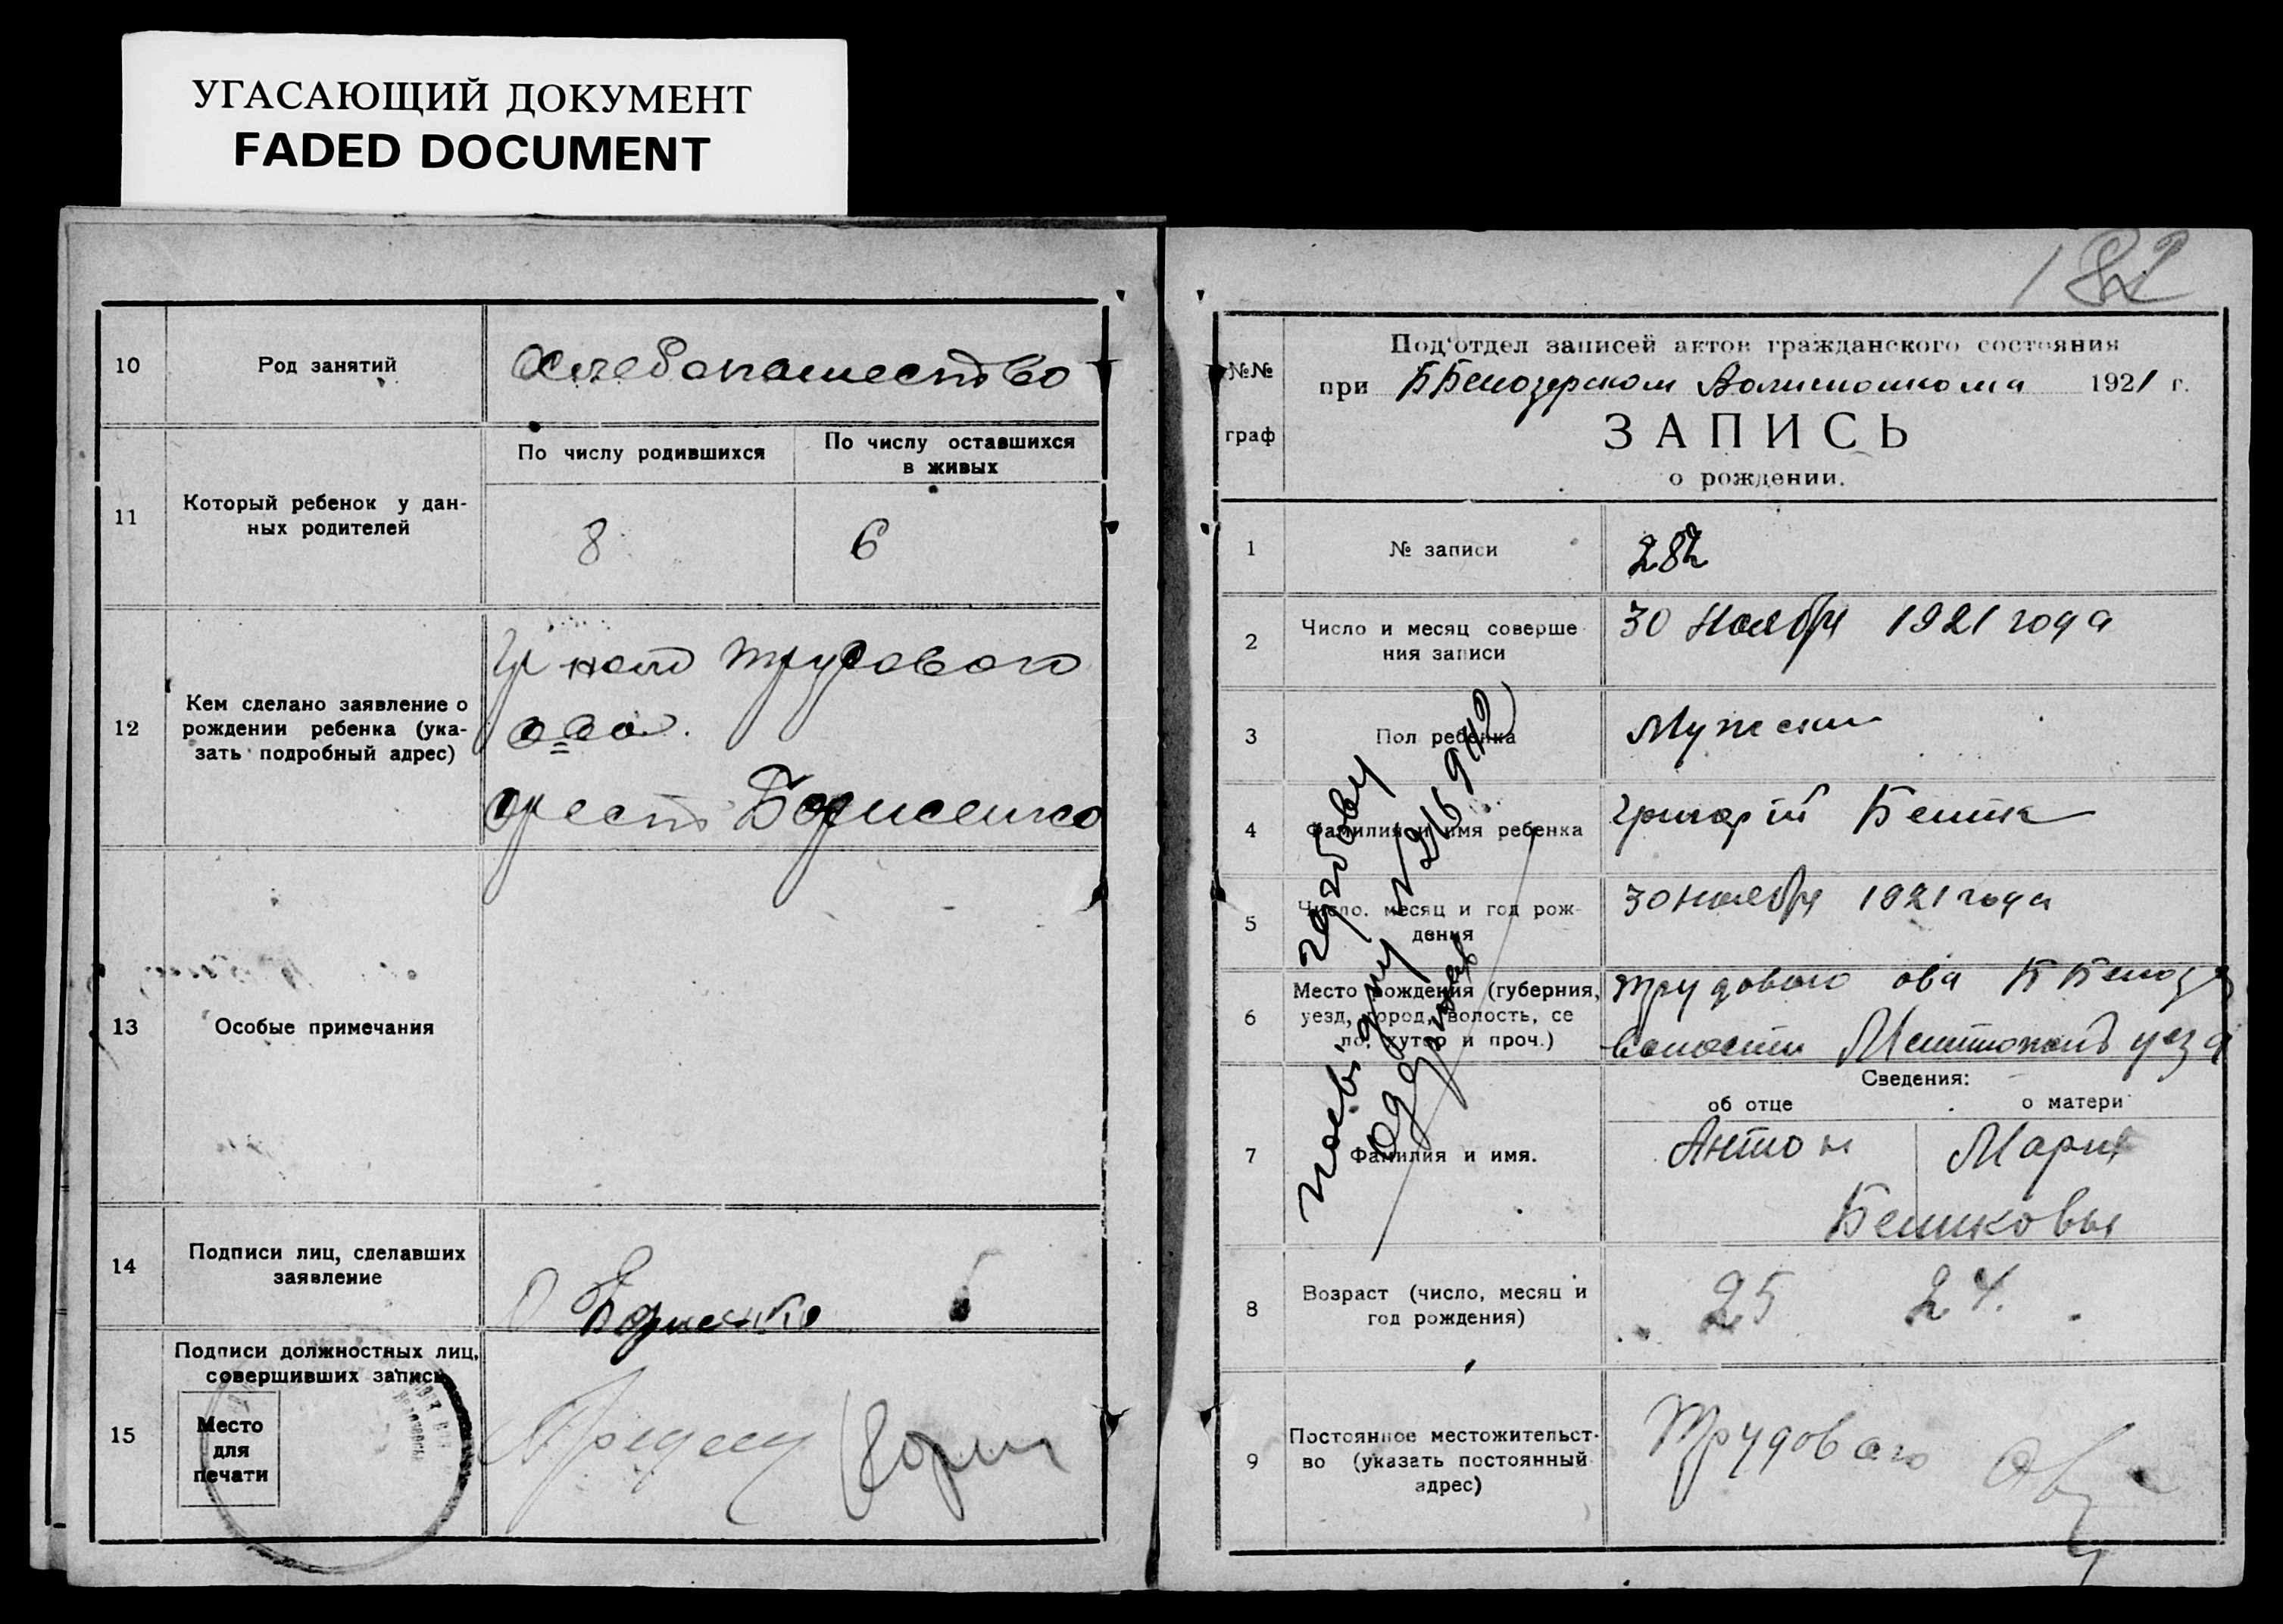 УГАСАЮЩИЙ ДОКУМЕНТ
FADED DOCUMENT
10
Род занятий
Хлебопашество
11
Который ребенок у дан-
ных родителей
По числу родившихся
По числу оставшихся
в живых
8
6
12
Кем сделано заявление о
рождении ребенка (ука-
зать подробный адрес)
трудового
ова.
Борисенко
13
Особые примечания
14
Подписи лиц, сделавших
заявление
Борисенко
15
Подписи должностных лиц,
совершивших запись
Место
для
печати
182
№№
граф
Под'отдел записей актов гражданского состояния
при ББелозерском 1921 г.
ЗАПИСЬ
о рождении.
1
№ записи
282
2
Число и месяц соверше
ния записи
30 Ноября 1921 года
3
Пол ребенка
Мужски
4
Фамилия и имя ребенка
Григорій
5
Число, месяц и год рож-
дения
30 ноября 1921 года
6
Место рождения (губерния,
уезд, город, волость, се
ло, хутор и проч.)
Трудового ова Б Белозер
волости уезд
Сведения:
об отце
о матери
7
Фамилия и имя.
Антон
Мария
8
Возраст (число, месяц и
год рождения)
25
24.
9
Постоянное местожительст-
во (указать постоянный
адрес)
Трудового